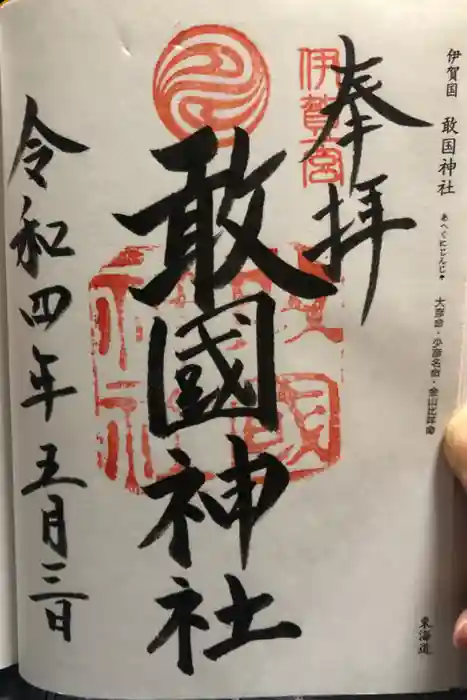 伊賀国 敢国神社
あへくにじんじゃ
大彦命・少彦名命・金山比咩命
東海道
奉拝
伊賀一宮
敢國神社
令和四年五月三日